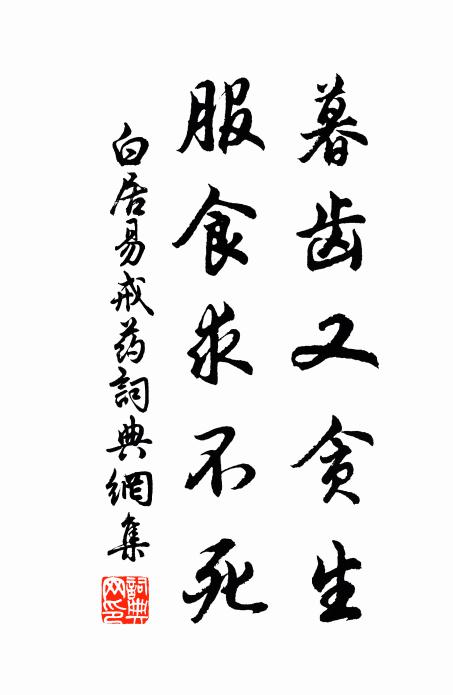 暮齿又贪生
服食求不死
白居易戒药詞典網集
詞典网印